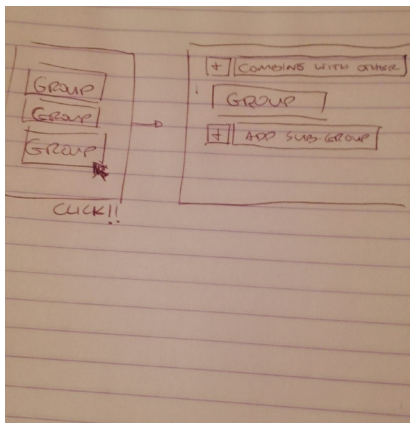 GROUP
GROUP
GROUP
CLICK!!
+ COMBINE WITH OTHER
GROUP
+ ADD SUB-GROUP